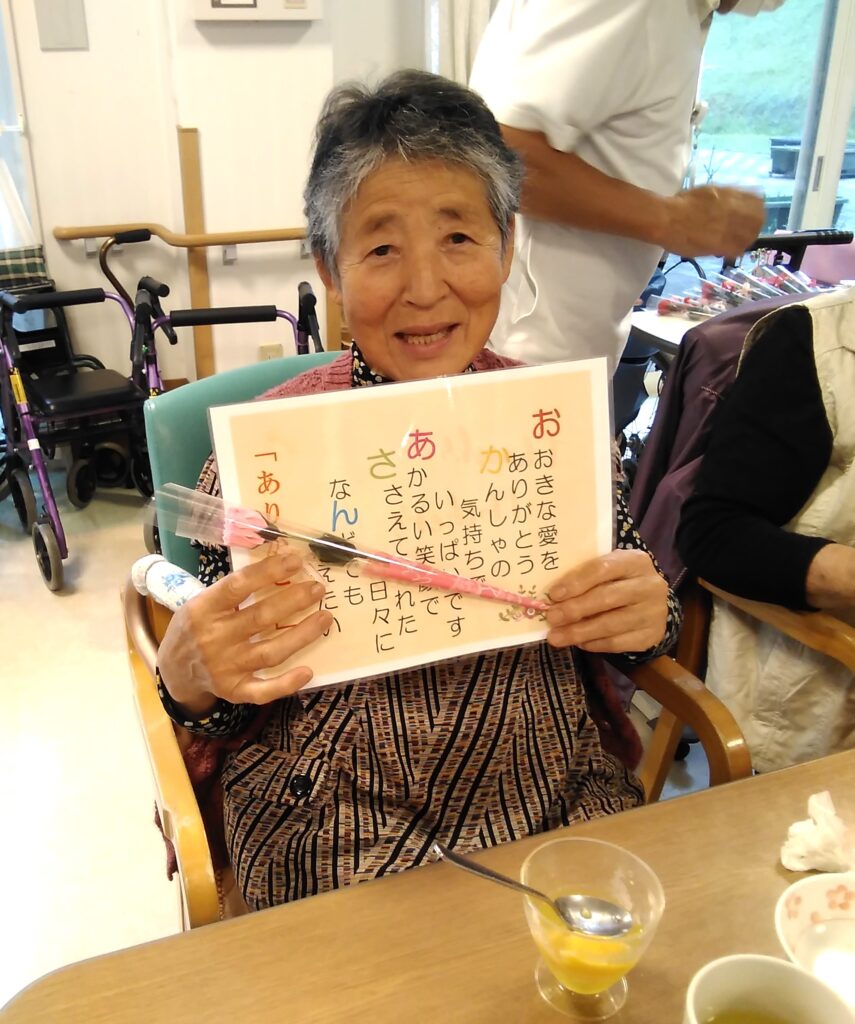 おおきな愛を
ありがとう
かんしゃの
気持ちで
いっぱいです
あかるい笑顔で
ささえて れた
日々に
なんど も
えたい
「あり